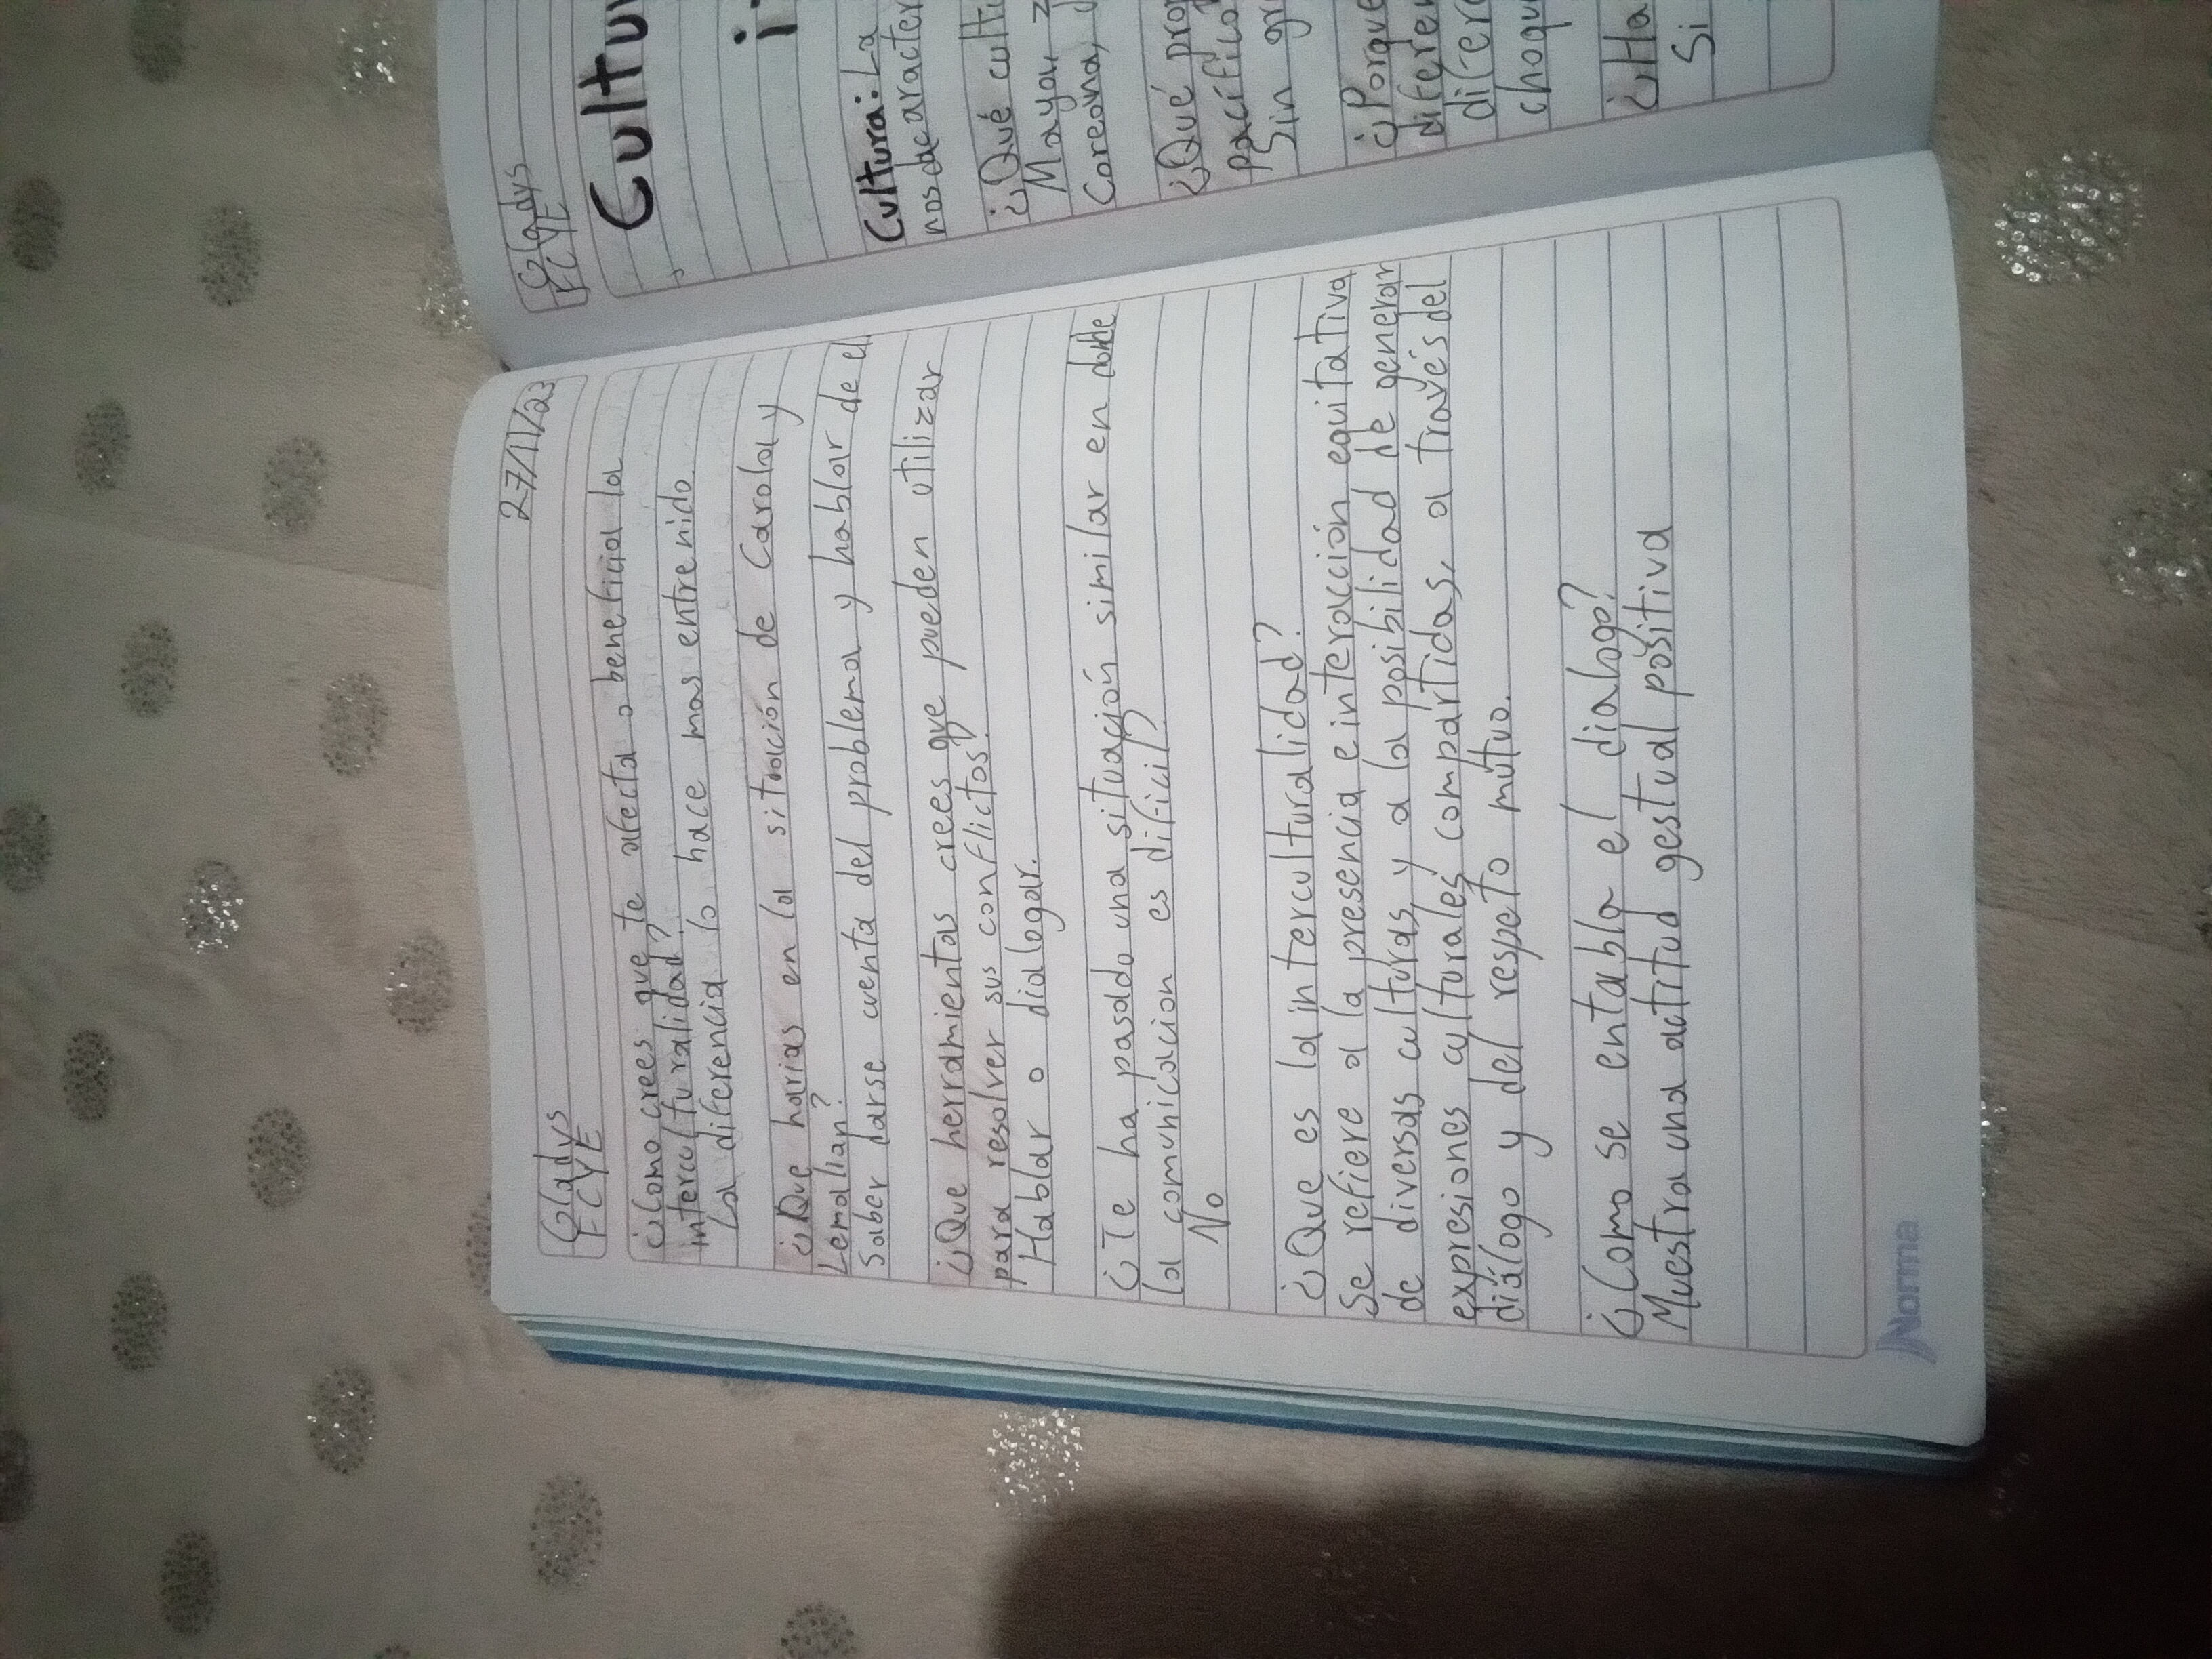 Gladys
FCYE
27/11/23
¿Como crees que te afecta o beneficia la
interculturalidad?
La diferencia lo hace mas entrenido.
¿Que harias en la situación de Carola y
Lemalian?
Saber darse cuenta del problema y hablar de el
¿Que herramientas crees que pueden utilizar
para resolver sus conflictos?
Hablar o dialogar.
¿Te ha pasado una situación similar en donde
la comunicacion es dificil?
No
¿Que es la interculturalidad?
Se refiere a la presencia e interacción equitativa
de diversas culturas y a la posibilidad de generar
expresiones culturales compartidas, a través del
diálogo y del respeto mutuo.
¿Como se entabla el dialogo?
Muestra una actitud gestual positiva
Norma
Gladys
FCYE
Cultu
Cultura: La
nos de caracter
¿Qué cult
Maya,
Coreana,
¿Qué pro
pacífico
Sin gr
¿Porque
diferen
difer
choqu
¿Ha
Si